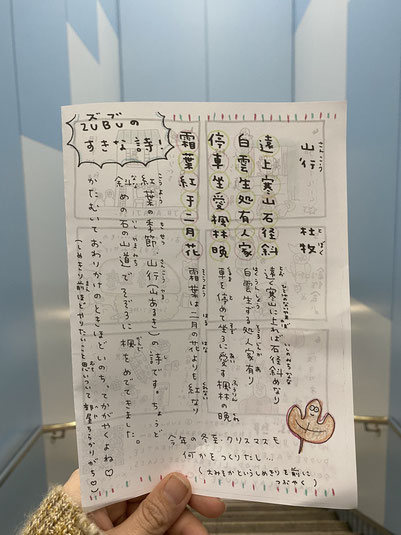 ZUBZUの
すきな詩!
山行 杜牧
さんこう とぼく
遠上寒山石径斜
白雲生処有人家
停車坐愛楓林晩
霜葉紅于二月花
遠く寒山に上れば石径斜めなり
白雲生ずる処人家有り
車を停めて坐ろに愛す楓林の晩
霜葉は二月の花よりも紅なり
紅葉の季節、山行(山あるき)の詩です。ちょうど
斜めの石の山道で、そぞろに楓をめでてきました。
かたむいておわりかけのときほどいのちってかがやくよね♡
今年の冬至、クリスマスも
何かをつくりたし…